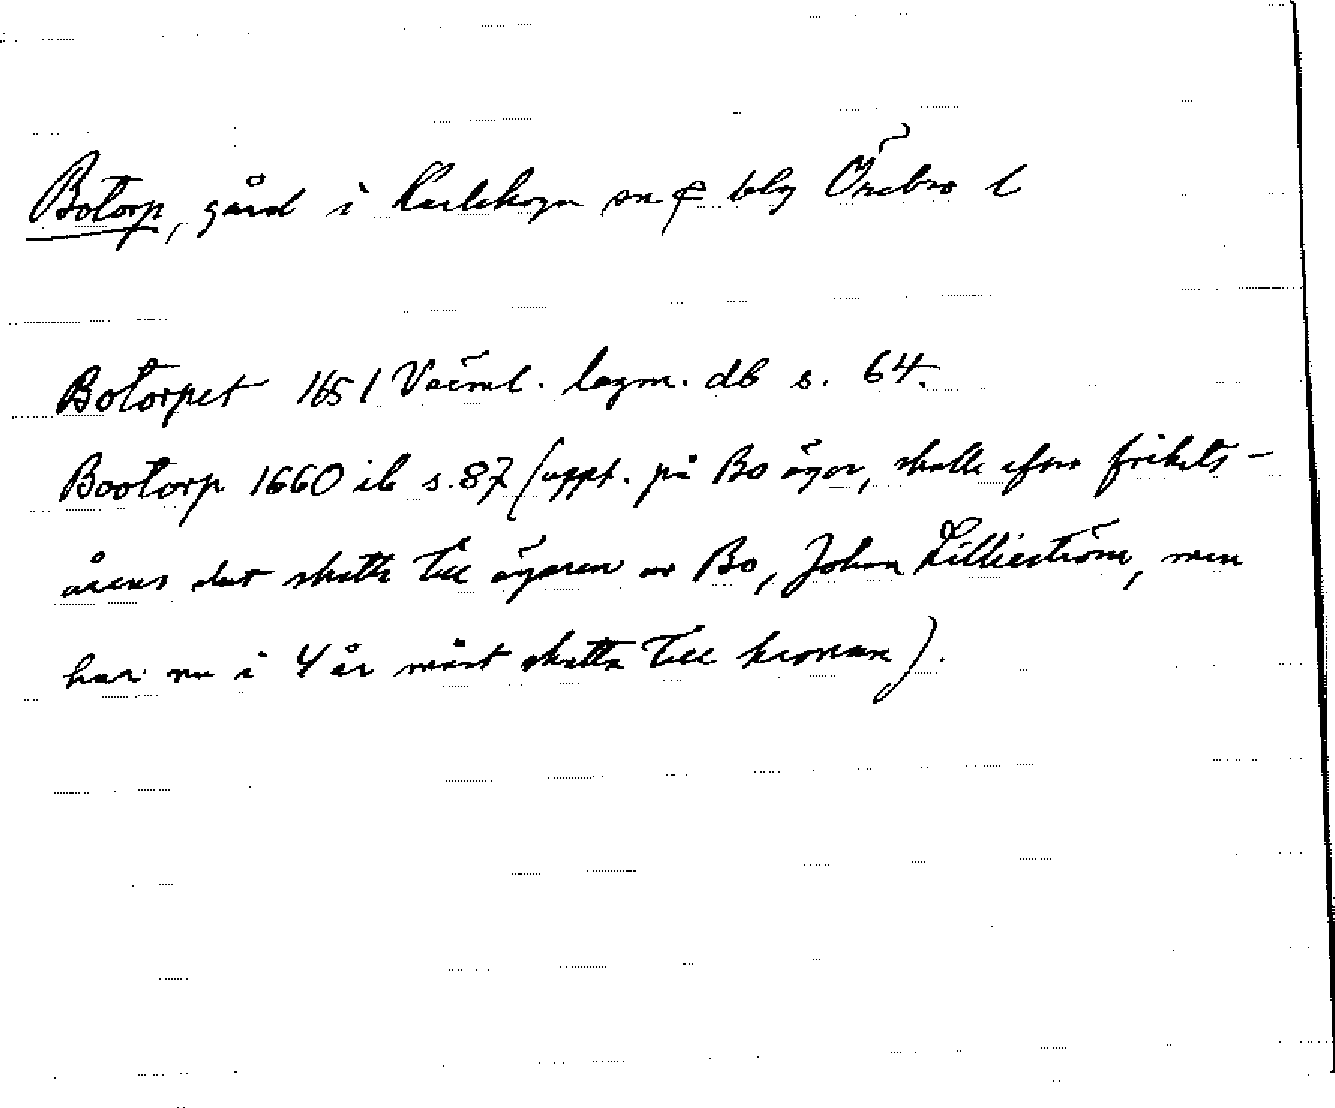 Botorp, gård i Karlskoga sn & blg Örebro l
Botorpet 1651 Värml. lagm. db s. 64.
Bootorp 1660 ib s. 87 (uppt. på Bo ägor, skulle efter frihets-
årens slut skatta till ägaren av Bo, Johan Lillieström, men
har nu i 4 år måst skatta till kronan).